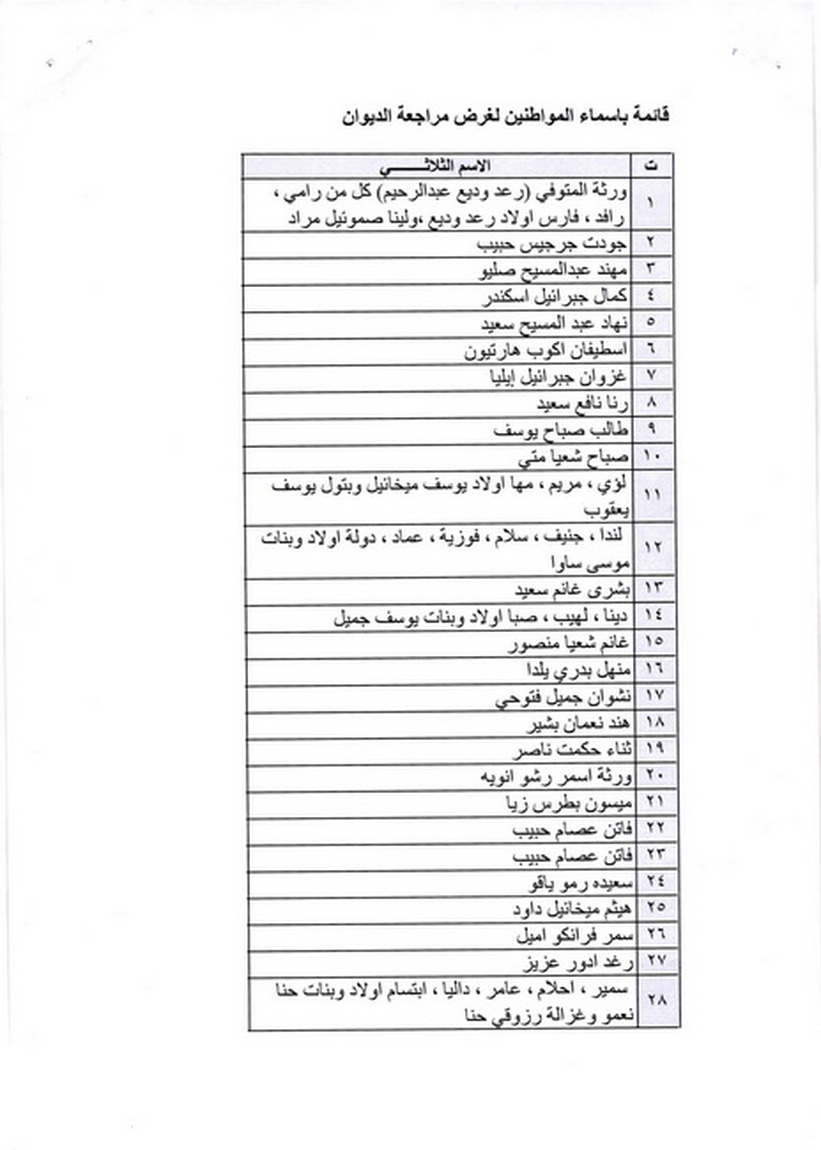 قائمة باسماء المواطنين لغرض مراجعة الديوان
ت الاسم الثلاثـــــــي
١ ورثة المتوفي (رعد وديع عبدالرحيم) كل من رامي ،
رافد ، فارس اولاد رعد وديع ،ولينا صموئيل مراد
٢ جودت جرجيس حبيب
٣ مهند عبدالمسيح صليو
٤ كمال جبرائيل اسكندر
٥ نهاد عبد المسيح سعيد
٦ اسطيفان اكوب هارتيون
٧ غزوان جبرائيل إيليا
٨ رنا نافع سعيد
٩ طالب صباح يوسف
١٠ صباح شعيا متي
١١ لؤي ، مريم ، مها اولاد يوسف ميخائيل وبتول يوسف
يعقوب
١٢ لندا ، جنيف ، سلام ، فوزية ، عماد ، دولة اولاد وبنات
موسى ساوا
١٣ بشرى غانم سعيد
١٤ دينا ، لهيب ، صبا اولاد وبنات يوسف جميل
١٥ غانم شعيا منصور
١٦ منهل بدري يلدا
١٧ نشوان جميل فتوحي
١٨ هند نعمان بشير
١٩ ثناء حكمت ناصر
٢٠ ورثة اسمر رشو انويه
٢١ ميسون بطرس زيا
٢٢ فاتن عصام حبيب
٢٣ فاتن عصام حبيب
٢٤ سعيده رمو ياقو
٢٥ هيثم ميخائيل داود
٢٦ سمر فرانكو اميل
٢٧ رغد ادور عزيز
٢٨ سمير ، احلام ، عامر ، داليا ، ابتسام اولاد وبنات حنا
نعمو وغزالة رزوقي حنا